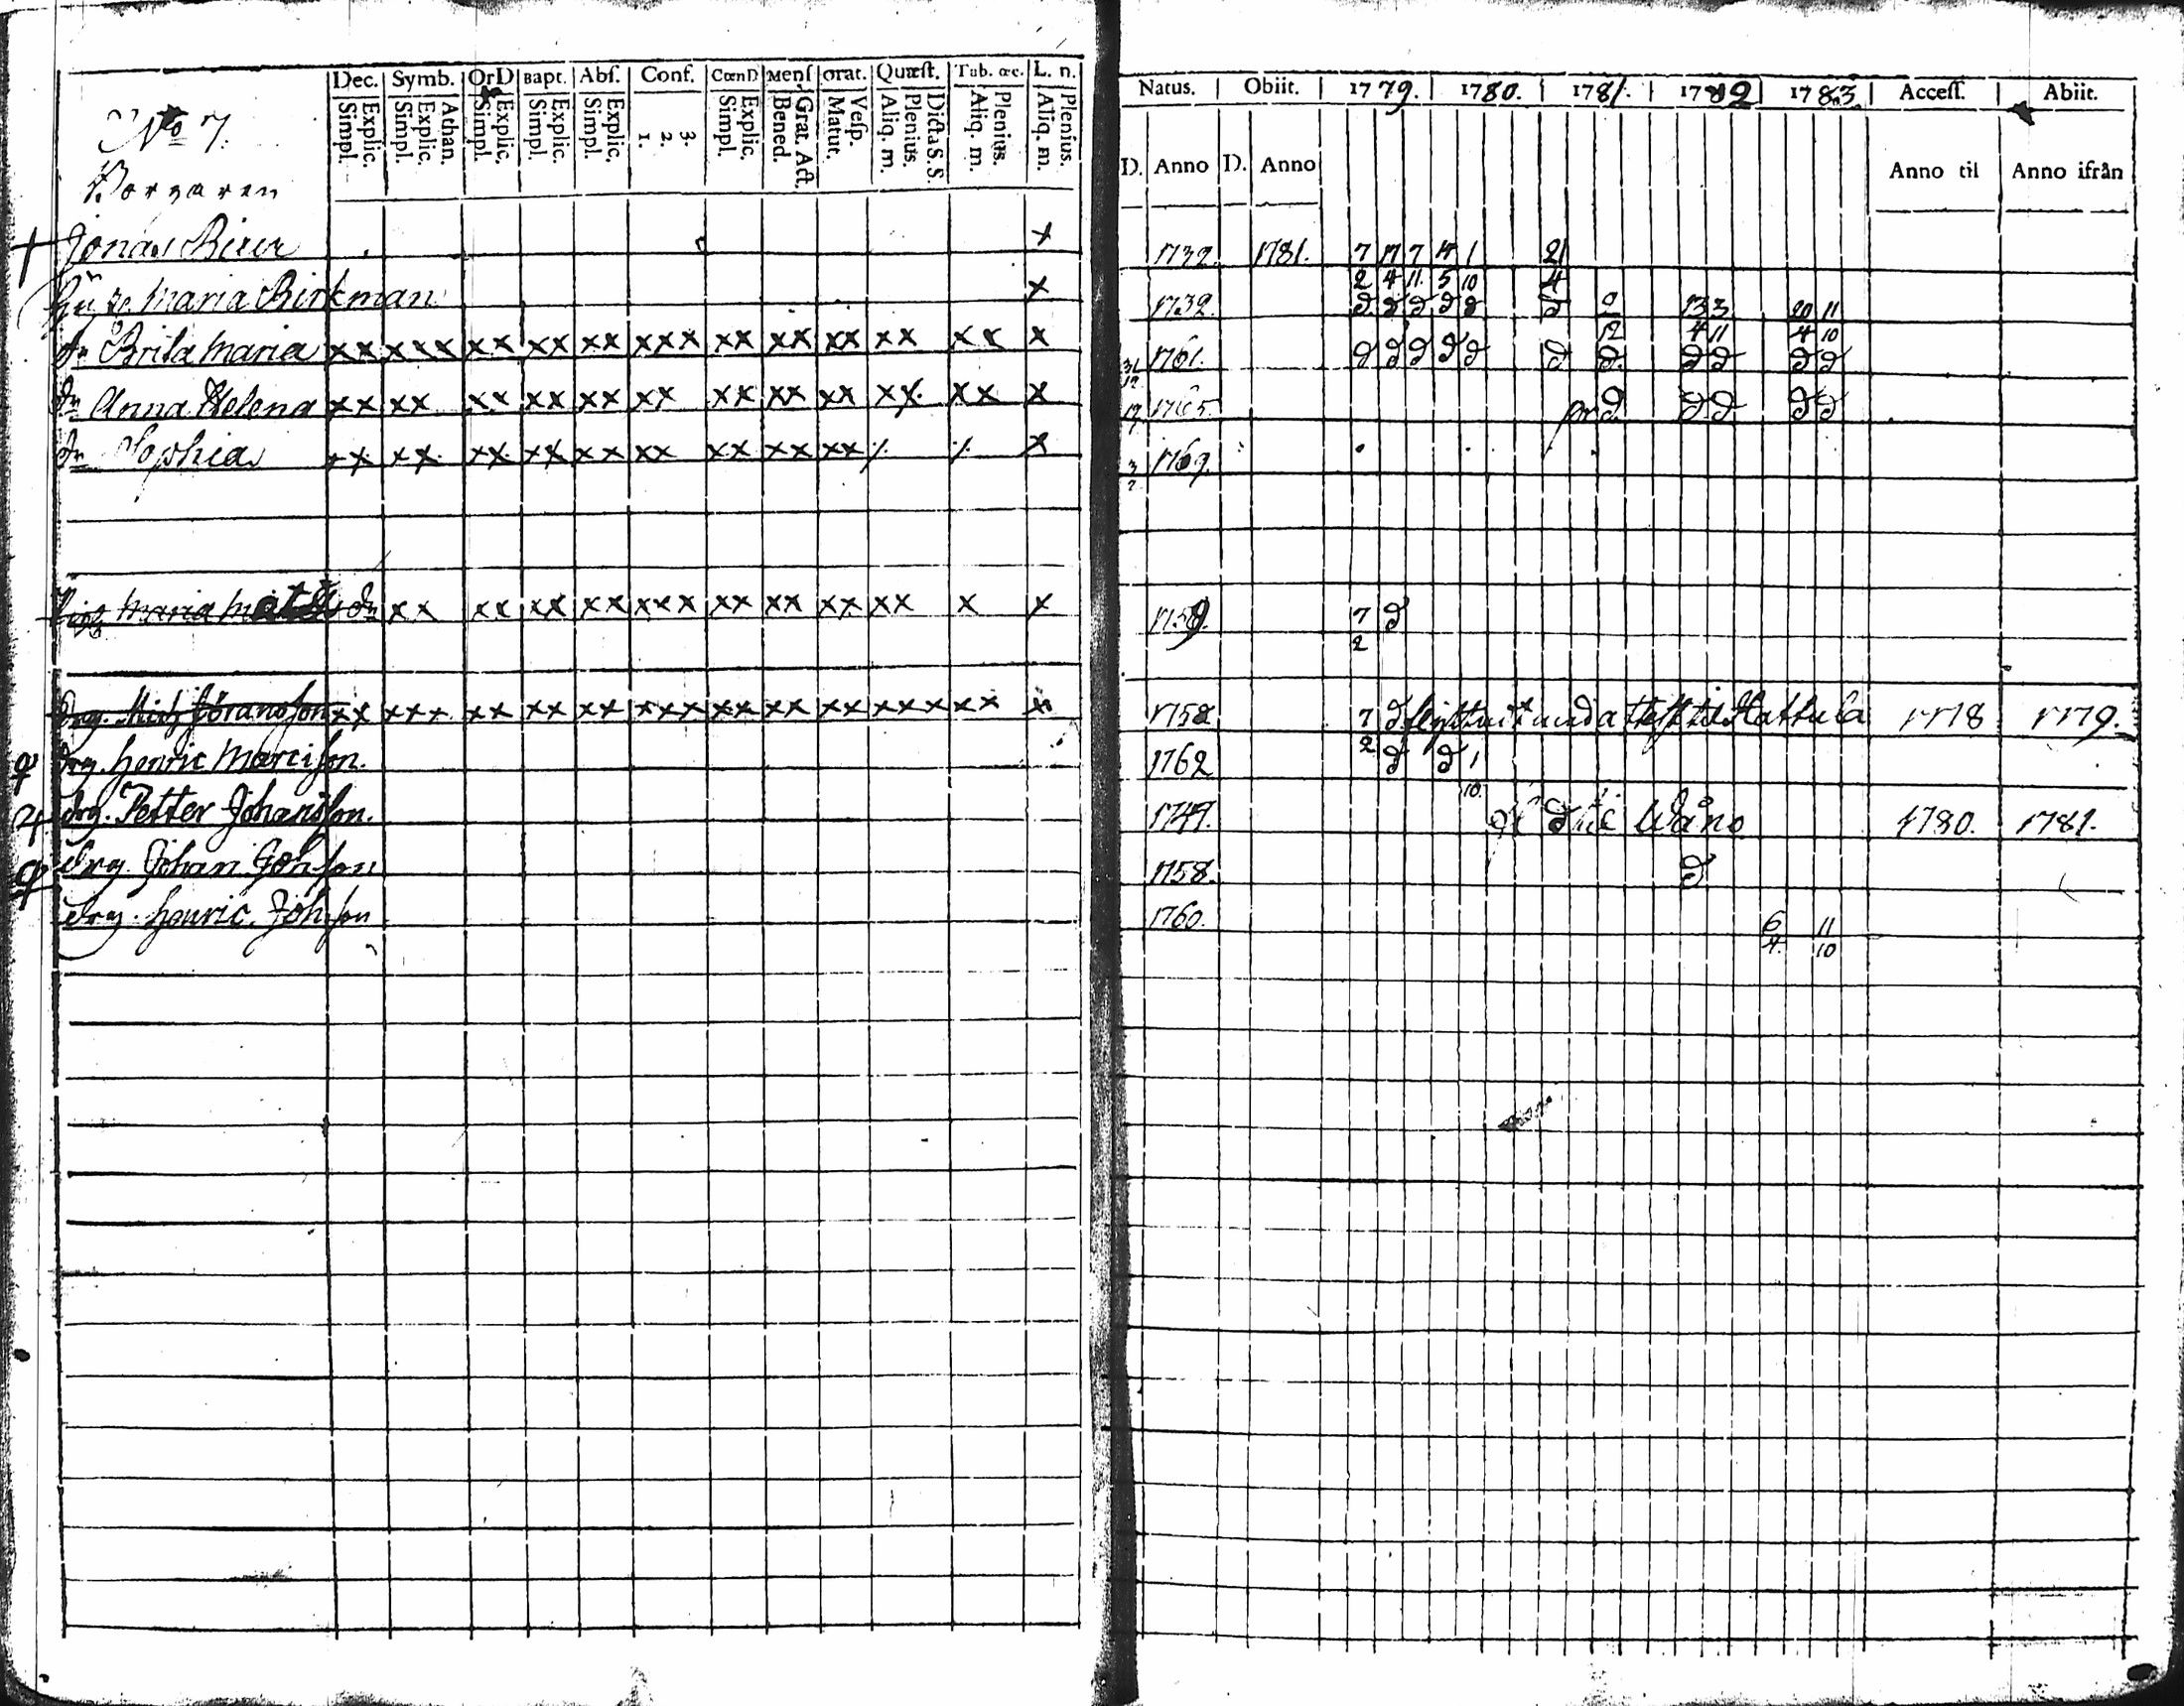 Dec. Symb. OrD Bapt. Abſ. Conf. CœnD Menſ. orat. Quæſt. Tab. œc. L. n.
Explic. Simpl. Athan. Explic. Simpl. Explic, Simpl. Explic, Simpl. Explic, Simpl. 3. 2. 1. Explic, Simpl. Grat. Act, Bened. Veſp. Matut. Dicta S. S. Plenius. Aliq. m. Plenius. Aliq. m. Plenius. Aliq. m.
Natus. Obiit. 1779. 1780. 1781. 1782 1783. Acceſſ. Abiit.
D. Anno D. Anno Anno til Anno ifrån
No 7.
Borgaren
Jonas 1732. 1781. 7 17 7 4 1 21
x 2 4 11. 5 10 4
Maria Birkman x 1732. d d d d d d 2 13 3 20 11
12 4 11 4 10
dr Brita Maria xx xxx xx xx xx xxx xx xx xx xx xx x 31 12 1761. d d d d d d d. d d d d
dr Anna Helena xx xx xx xx xx xx xx xx xx xx. xx x 17 1765. d. d d d d
dr Sophia xx xx. xx. xx xx xx xx xx xx x 3 2 1769.
Maria Mats dr xx xx xx xx xxx xx xx xx xx x x 1759. 7 d
2
drg. Mich Göransson xx xxx xx xx xx xxx xx xx xx xxx xx x 1752 7 d attest til Hattula 1778 1779.
2
drg. Henric Marcisson. 1762 d d 1
10.
drg. Petter Johansson. 1747. Wåno 1780. 1781.
drg. Johan Johsson 1758. d
drg. Henric. Johsson 1760. 6 11
4. 10